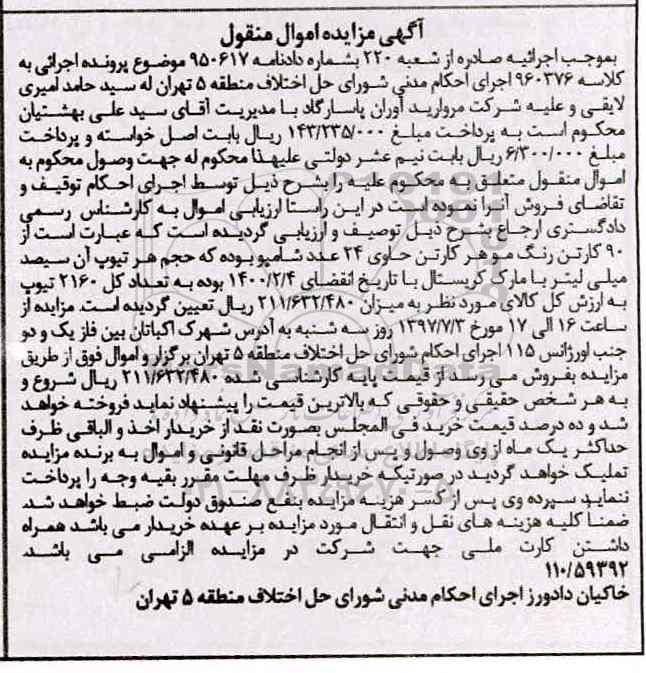 آگهی مزایده اموال منقول
بموجب اجرائیه صادره از شعبه ۲۲۰ بشماره دادنامه ۹۵۰۶۱۷ موضوع پرونده اجرائی به
کلاسه ۹۶۰۳۷۶ اجرای احکام مدنی شورای حل اختلاف منطقه ۵ تهران له سید حامد امیری
لایقی و علیه شرکت مروارید آوران پاسارگاد با مدیریت آقای سید علی بهشتیان
محکوم است به پرداخت مبلغ ۱۴۳/۲۳۵/۰۰۰ ریال بابت اصل خواسته و پرداخت
مبلغ ۶/۳۰۰/۰۰۰ ریال بابت نیم عشر دولتی علیهذا محکوم له جهت وصول محکوم به
اموال منقول متعلق به محکوم علیه را بشرح ذیل توسط اجرای احکام توقیف و
تقاضای فروش آنرا نموده است در این راستا ارزیابی اموال به کارشناس رسمی
دادگستری ارجاع بشرح ذیل توصیف و ارزیابی گردیده است که عبارت است از
۹۰ کارتن رنگ مو هر کارتن حاوی ۲۴ عدد شامپو بوده که حجم هر تیوپ آن سیصد
میلی لیتر با مارک کریستال با تاریخ انقضای ۱۴۰۰/۲/۴ بوده به تعداد کل ۲۱۶۰ تیوپ
به ارزش کل کالای مورد نظر به میزان ۲۱۱/۶۳۲/۴۸۰ ریال تعیین گردیده است. مزایده از
ساعت ۱۶ الی ۱۷ مورخ ۱۳۹۷/۷/۳ روز سه شنبه به آدرس شهرک اکباتان بین فاز یک و دو
جنب اورژانس ۱۱۵ اجرای احکام شورای حل اختلاف منطقه ۵ تهران برگزار و اموال فوق از طریق
مزایده بفروش می رسد از قیمت پایه کارشناسی شده ۲۱۱/۶۳۲/۴۸۰ ریال شروع و
به هر شخص حقیقی و حقوقی که بالاترین قیمت را پیشنهاد نماید فروخته خواهد
شد و ده درصد قیمت خرید فی المجلس بصورت نقد از خریدار اخذ و الباقی ظرف
حداکثر یک ماه از وی وصول و پس از انجام مراحل قانونی و اموال به برنده مزایده
تملیک خواهد گردید در صورتیکه خریدار ظرف مهلت مقرر بقیه وجه را پرداخت
ننماید سپرده وی پس از کسر هزینه مزایده بنفع صندوق دولت ضبط خواهد شد.
ضمنا کلیه هزینه های نقل و انتقال مورد مزایده بر عهده خریدار می باشد همراه
داشتن کارت ملی جهت شرکت در مزایده الزامی می باشد.
۱۱۰/۵۹۳۹۲
خاکیان دادورز اجرای احکام مدنی شورای حل اختلاف منطقه ۵ تهران